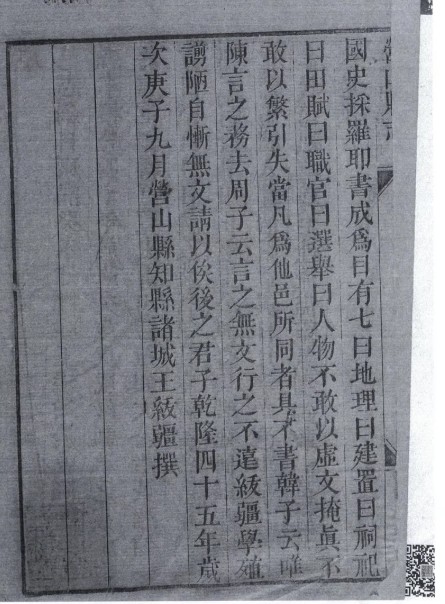 營山縣志
國史採羅耶書成爲目有七曰地理曰建置曰祠祀
曰田賦曰職官曰選舉曰人物不敢以虛文掩眞不
敢以繁引失當凡爲他邑所同者具不書韓子云唯
陳言之務去周子云言之無文行之不遠綏疆學殖
謭陋自慚無文請以俟後之君子乾隆四十五年歲
次庚子九月營山縣知縣諸城王綏疆撰